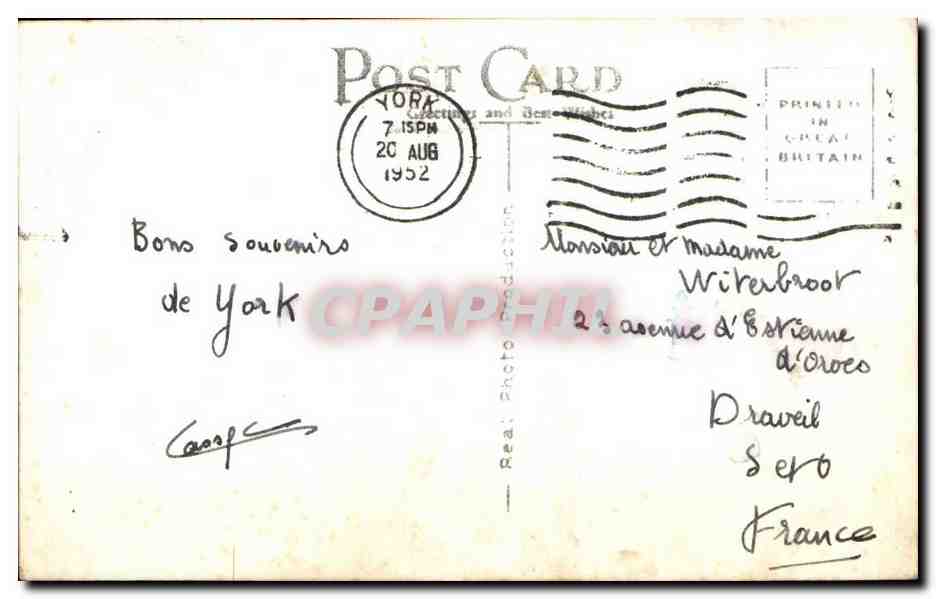 POST CARD
Greetings and Best Wishes
YORK
7.15PM
20 AUG
1952
PRINTED
IN
GREAT
BRITAIN
Bons souvenirs
de York
Real Photo Production
CPAPHIL
Monsieur et madame
Witerbroot
23 avenue d'Estienne
d'Orves
Draveil
S et O
France